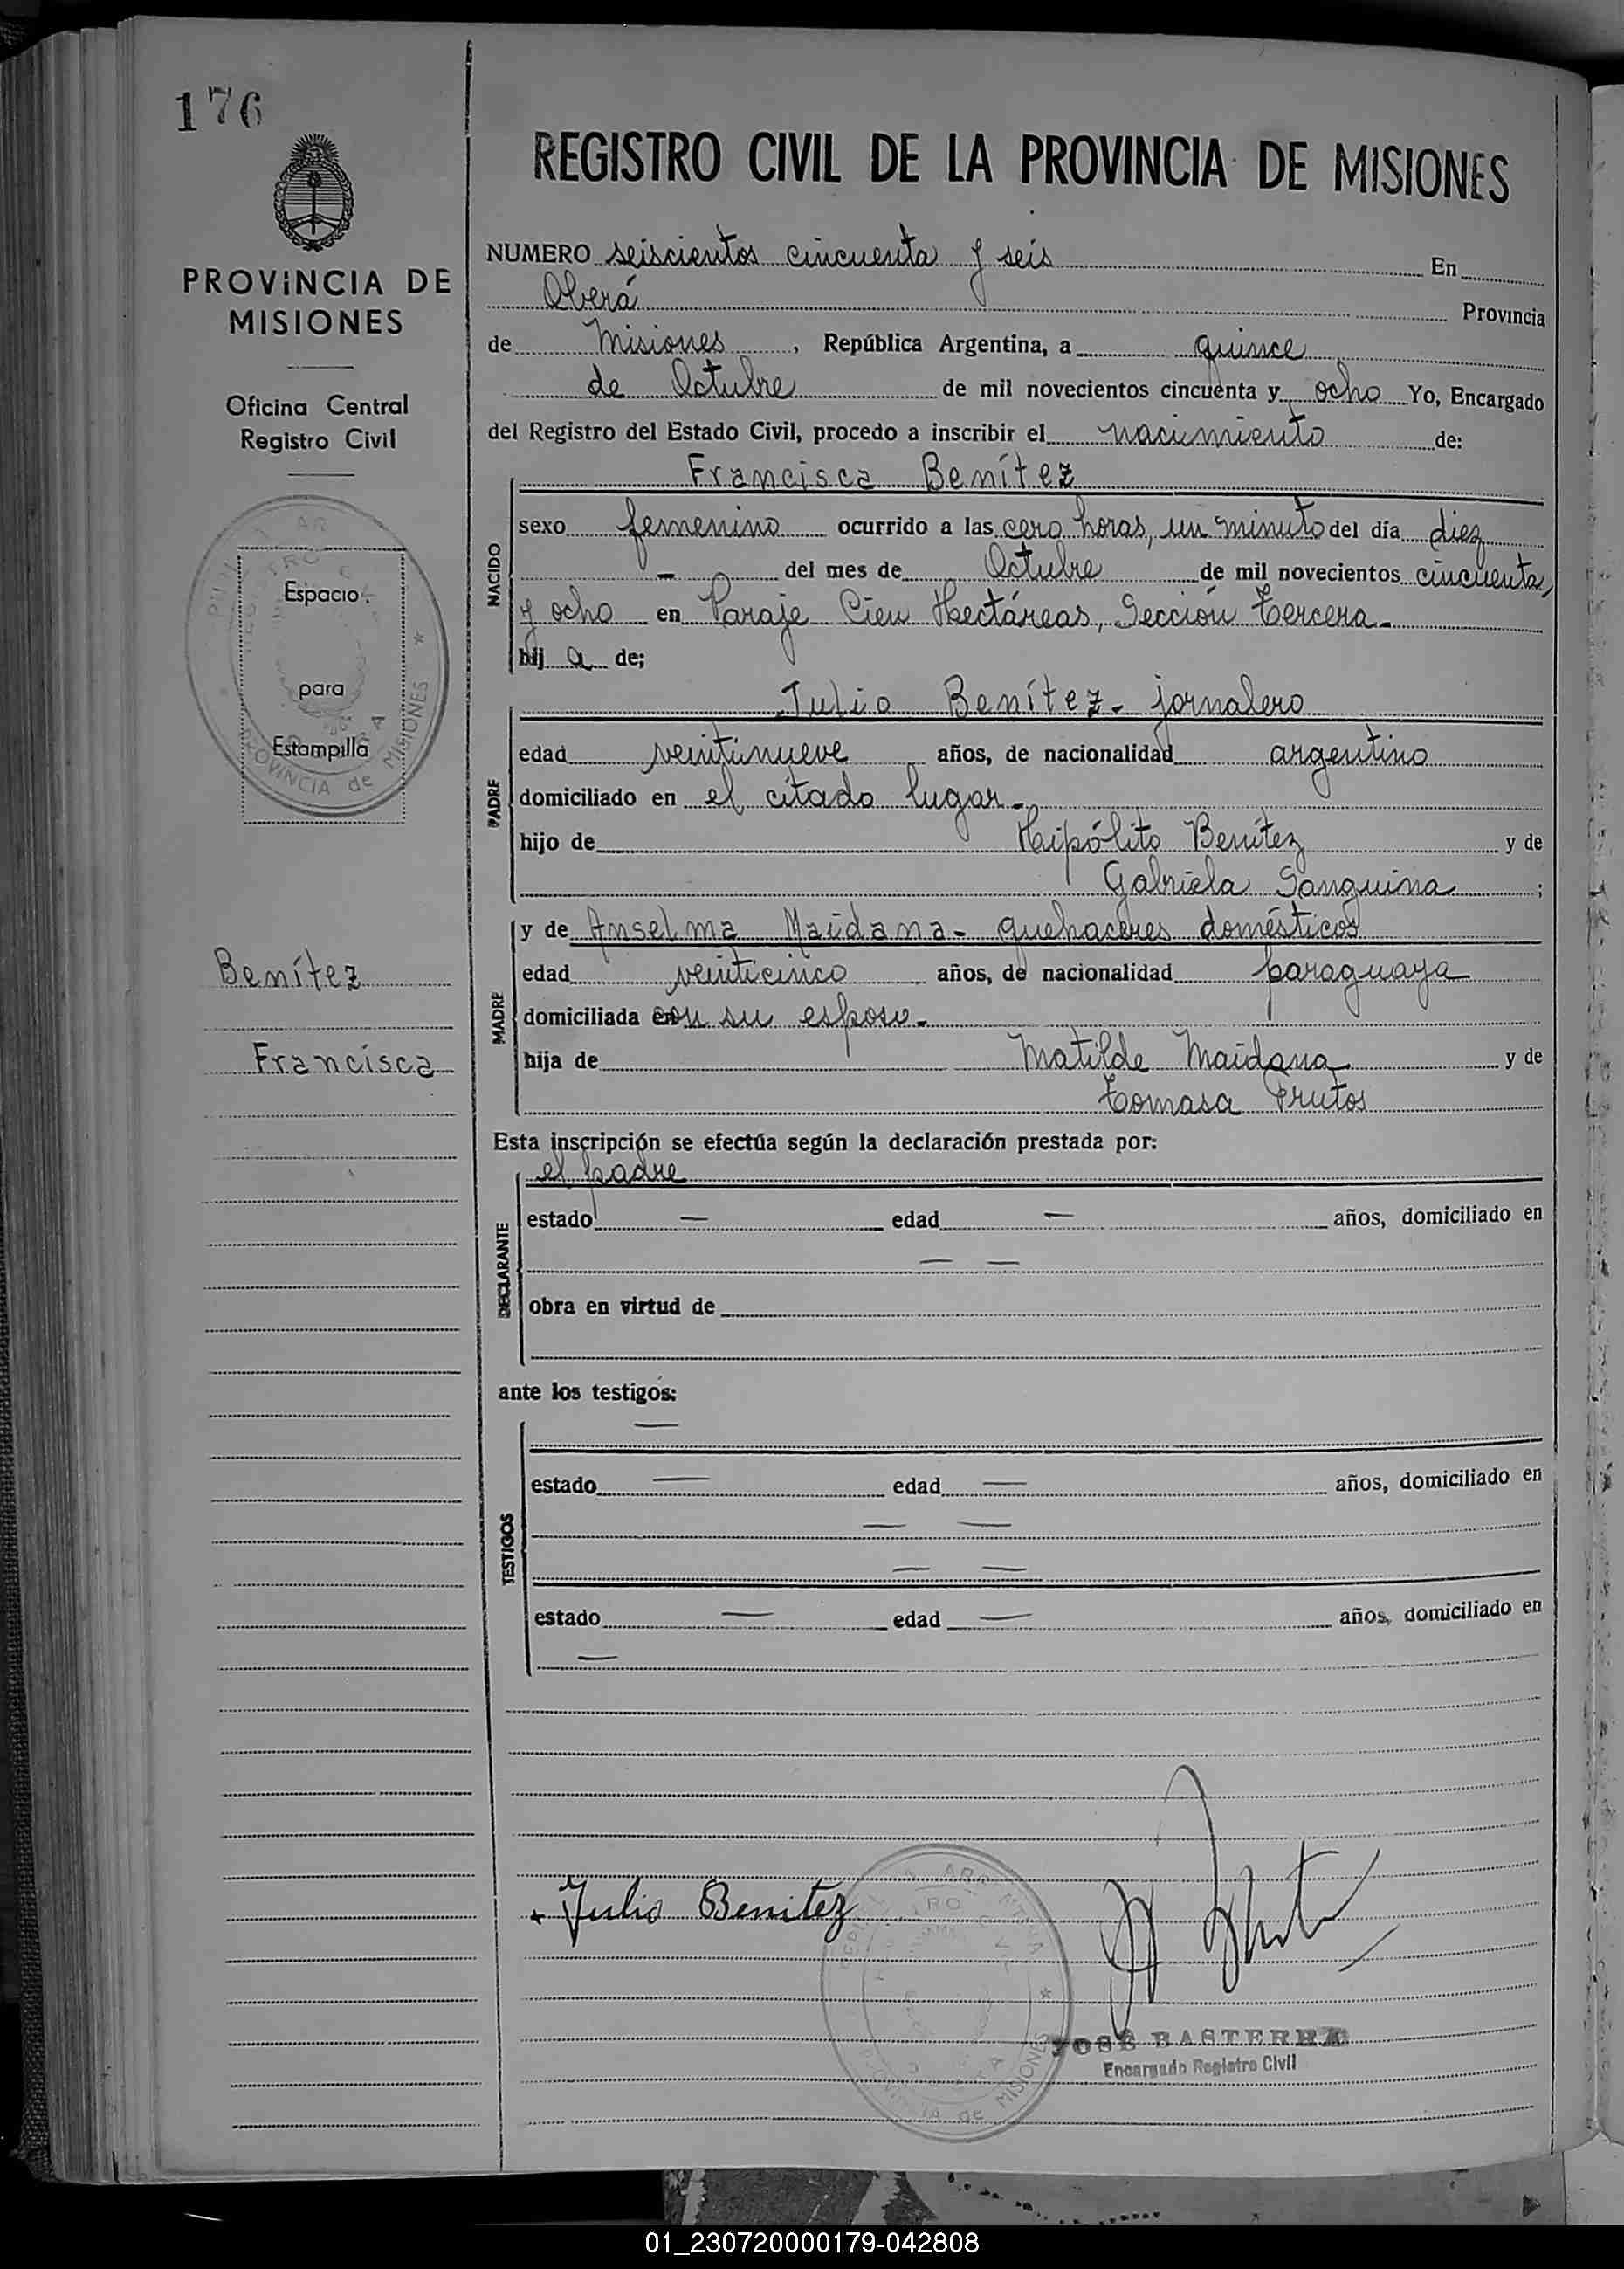 176
PROVINCIA DE
MISIONES
Oficina Central
Registro Civil
Espacio
para
Estampilla
PROVINCIA de MISIONES
Benítez
Francisca
REGISTRO CIVIL DE LA PROVINCIA DE MISIONES
NUMERO seiscientos cincuenta y seis En
Oberá Provincia
de Misiones, República Argentina, a quince
de Octubre de mil novecientos cincuenta y ocho Yo, Encargado
del Registro del Estado Civil, procedo a inscribir el nacimiento de:
Francisca Benítez
NACIDO
sexo femenino ocurrido a las cero horas, un minuto del día diez
— del mes de Octubre de mil novecientos cincuenta
y ocho en Paraje Cien Hectáreas, Sección Tercera.-
hij a de;
Julio Benítez - jornalero
PADRE
edad veintinueve años, de nacionalidad argentino
domiciliado en el citado lugar.-
hijo de Hipólito Benítez y de
Gabriela Sanguina ;
MADRE
y de Anselma Maidana - quehaceres domésticos
edad veinticinco años, de nacionalidad paraguaya
domiciliada con su esposo.-
hija de Matilde Maidana y de
Tomasa Frutos
Esta inscripción se efectúa según la declaración prestada por:
el padre
DECLARANTE
estado — edad — años, domiciliado en
— —
obra en virtud de
ante los testigos:
—
TESTIGOS
estado — edad — años, domiciliado en
— —
— —
estado — edad — años, domiciliado en
—
Julio Benitez
PROVINCIA de MISIONES
JOSÉ BASTERRA
Encargado Registro Civil
01_230720000179-042808